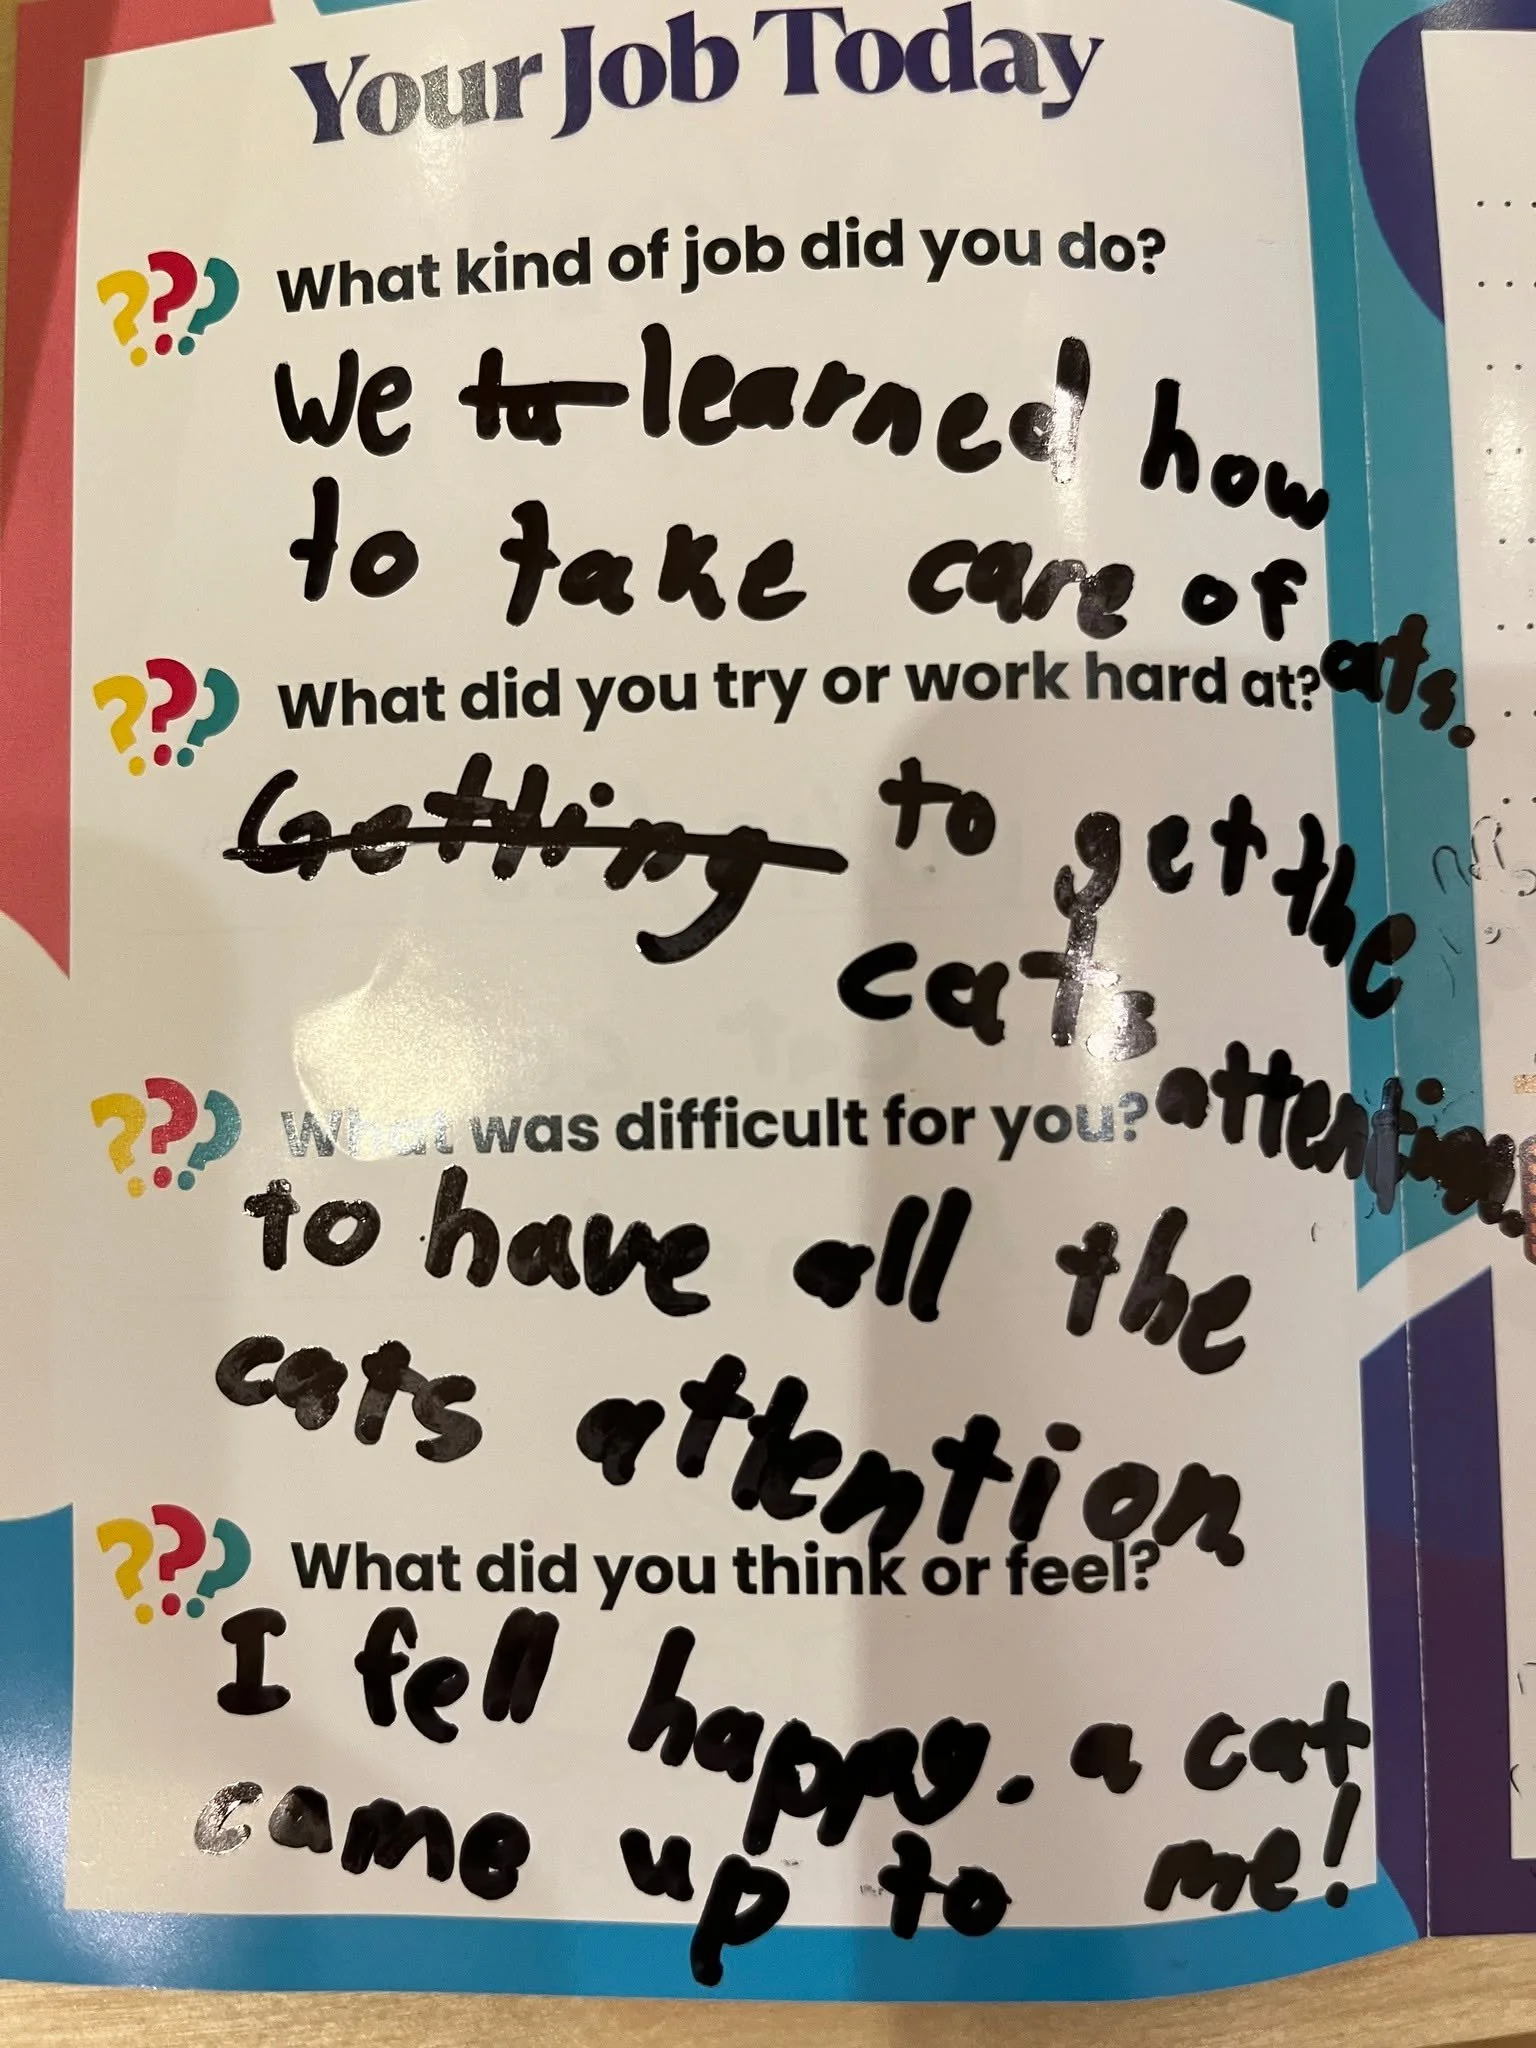 Your Job Today
??? What kind of job did you do?
We to learned how
to take care of
cats.
??? What did you try or work hard at?
Getting to get the
cats
attention.
??? What was difficult for you?
to have all the
cats attention.
??? What did you think or feel?
I fell happy. a cat
came up to me!